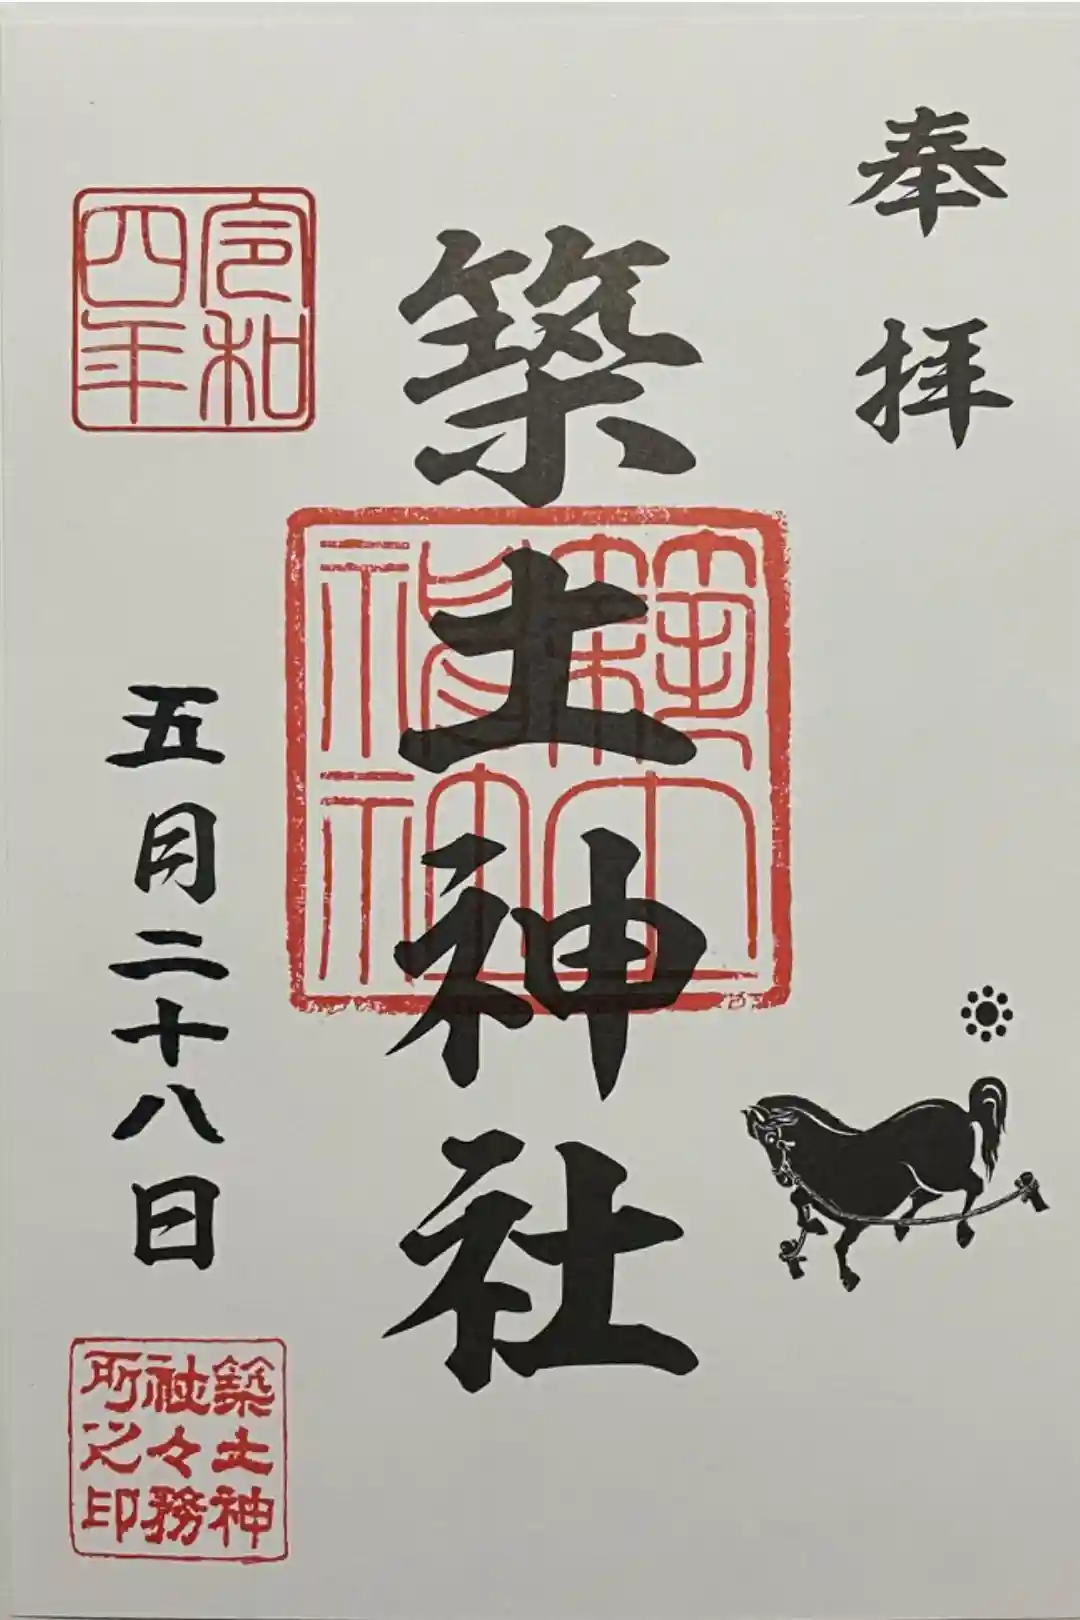 奉拝
築土神社
築土神社
令和
四年
五月二十八日
築土神
社々務
所之印